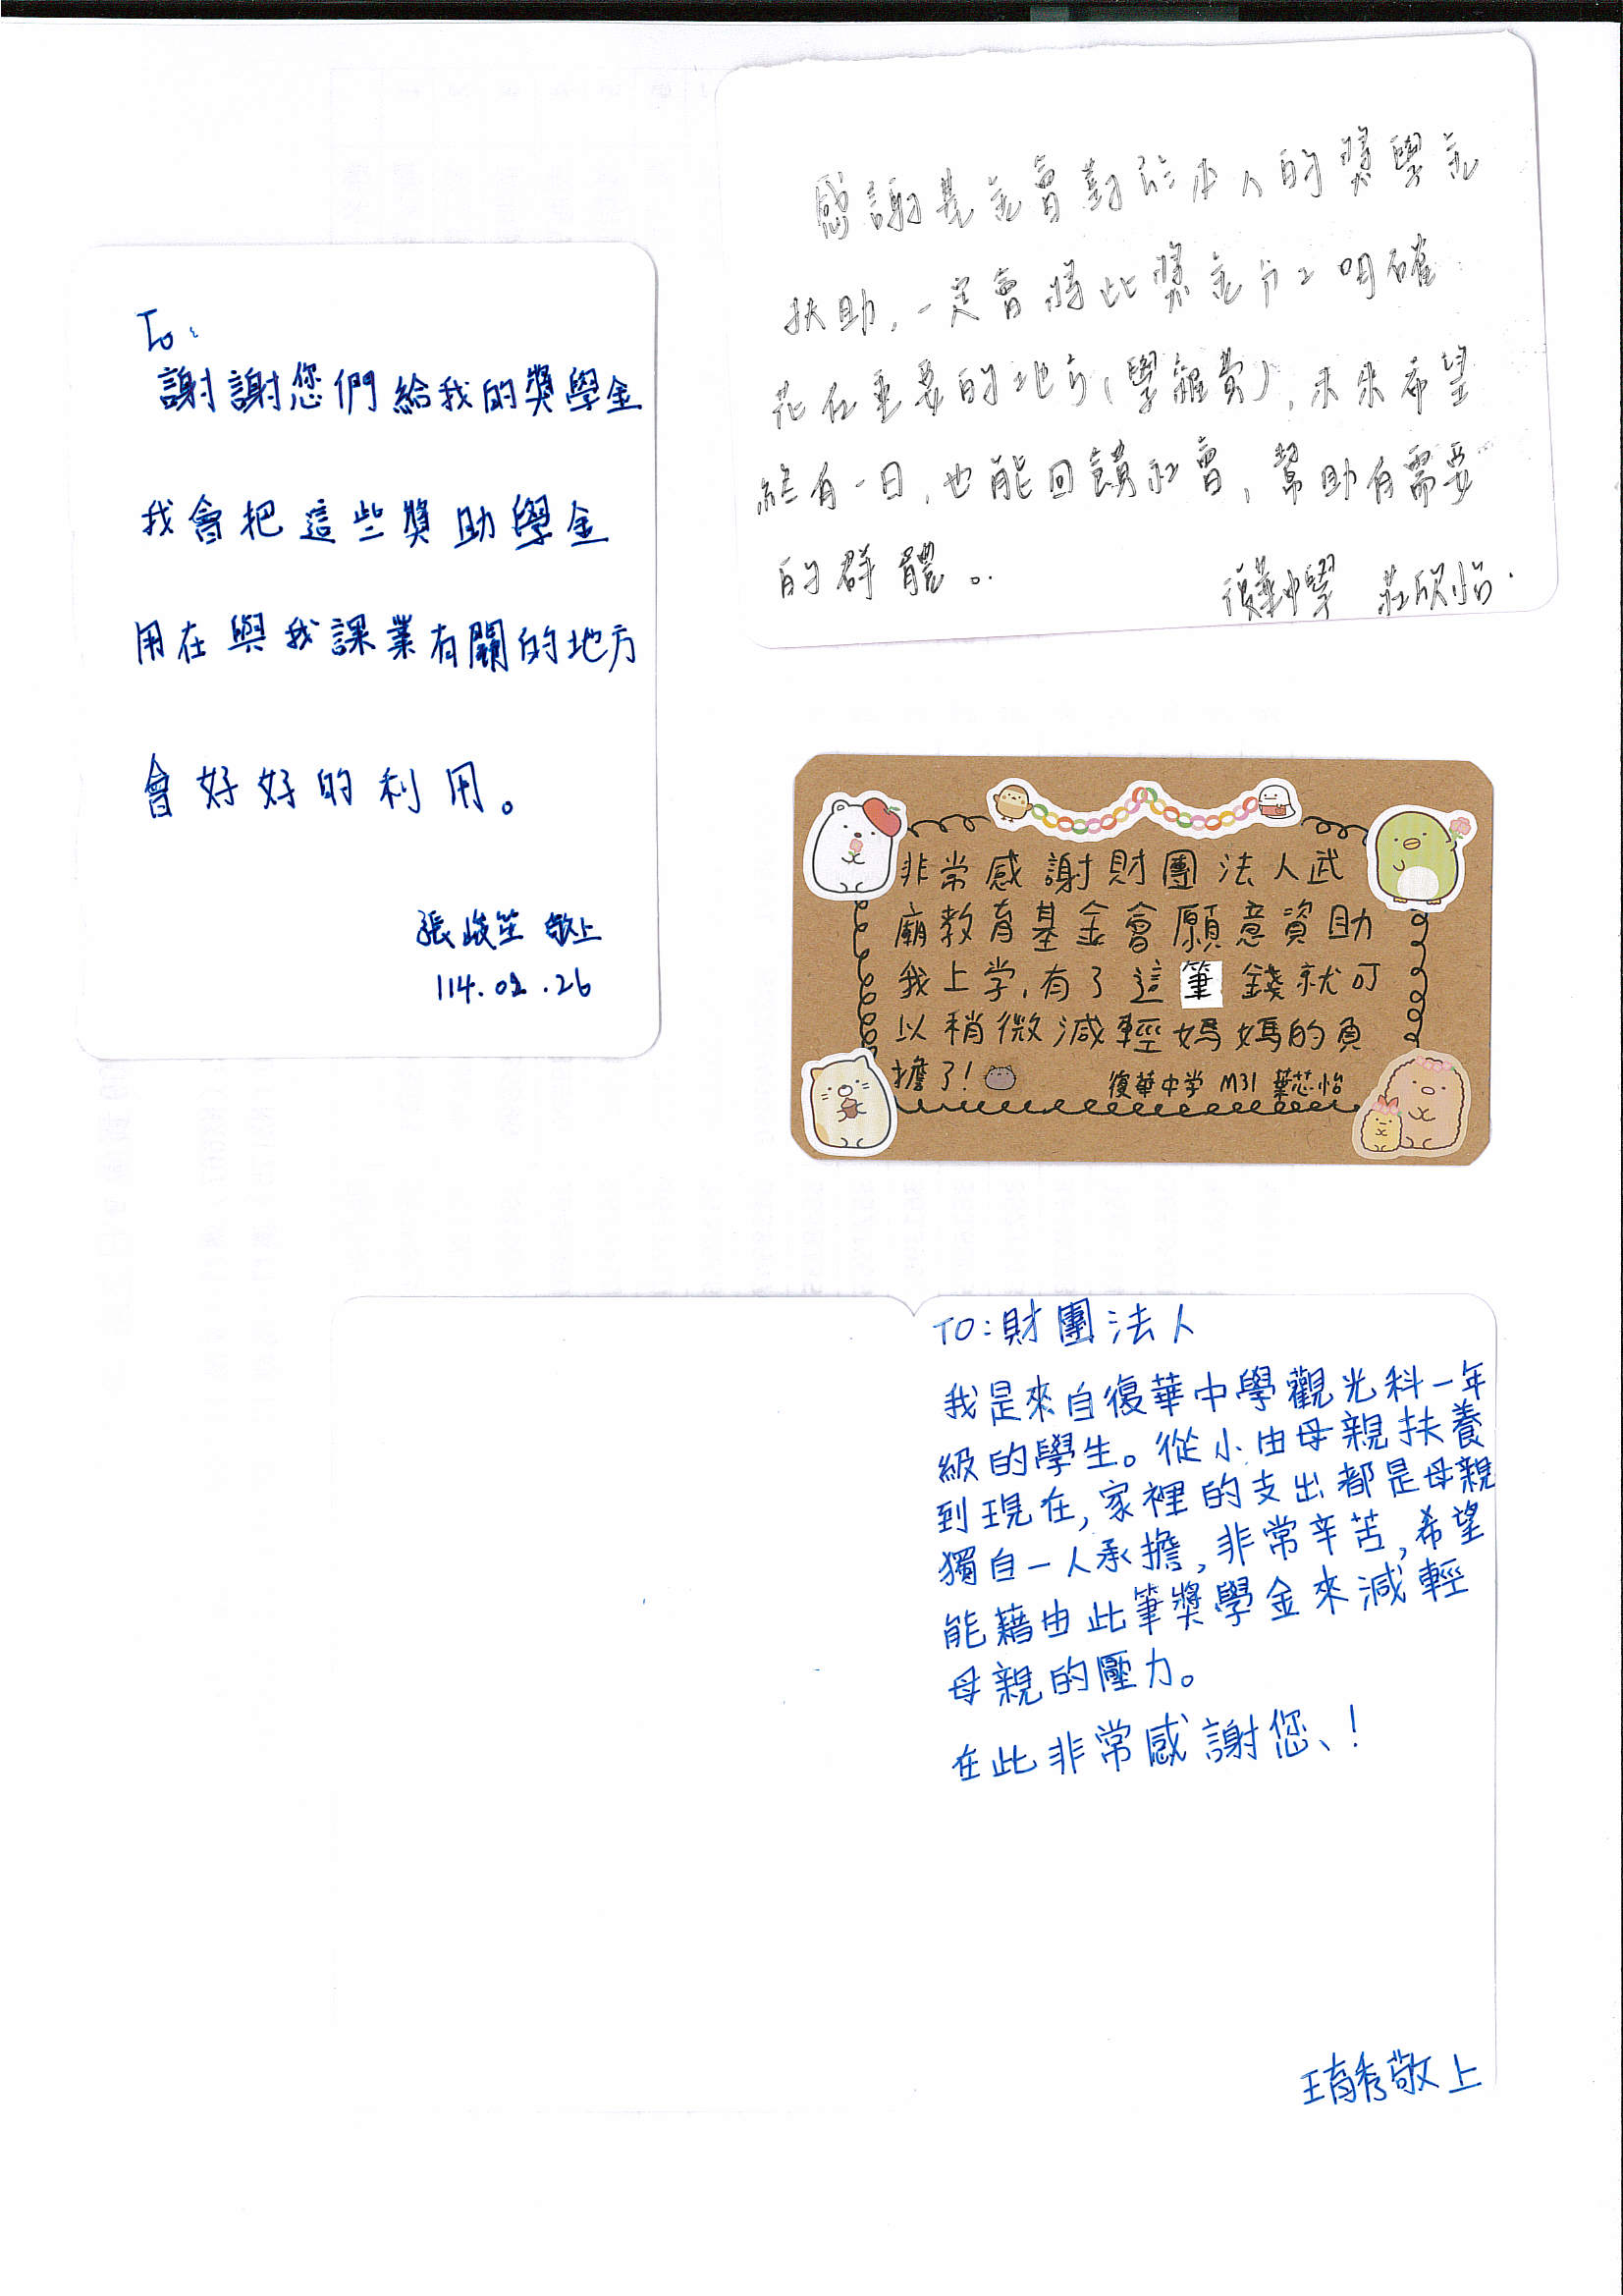 To:
謝謝您們給我的獎學金
我會把這些獎助學金
用在與我課業有關的地方
會好好的利用。
張峻笙 敬上
114.02.26
感謝基金會對於本人的獎學金
扶助,一定會將此獎金分工明確
花在重要的地方(學雜費),未來希望
終有一日,也能回饋社會,幫助有需要
的群體。
復華中學 莊欣怡.
非常感謝財團法人武
廟教育基金會願意資助
我上学,有了這筆錢就可
以稍微減輕媽媽的負
擔了!
復華中学 M31 葉芯怡
TO:財團法人
我是來自復華中學觀光科一年
級的學生。從小由母親扶養
到現在,家裡的支出都是母親
獨自一人承擔,非常辛苦,希望
能藉由此筆獎學金來減輕
母親的壓力。
在此非常感謝您、!
王育秀敬上